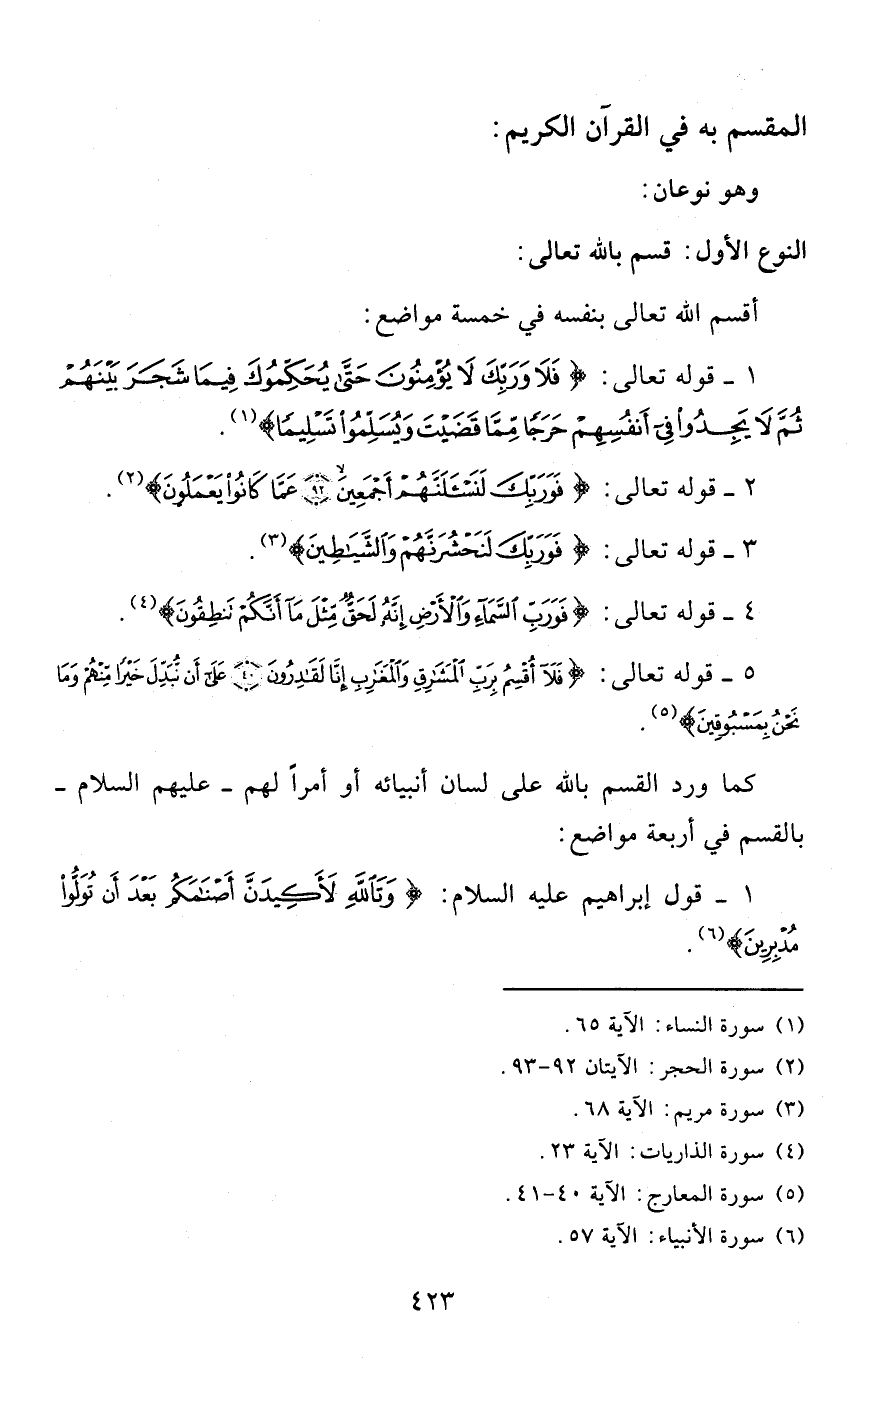 المقسم به في القرآن الكريم:
وهو نوعان:
النوع الأول: قسم بالله تعالى:
أقسم الله تعالى بنفسه في خمسة مواضع:
١ ـ قوله تعالى: ﴿فَلَا وَرَبِّكَ لَا يُؤْمِنُونَ حَتَّىٰ يُحَكِّمُوكَ فِيمَا شَجَرَ بَيْنَهُمْ
ثُمَّ لَا يَجِدُوا۟ فِىٓ أَنفُسِهِمْ حَرَجًا مِّمَّا قَضَيْتَ وَيُسَلِّمُوا۟ تَسْلِيمًا﴾(١).
٢ ـ قوله تعالى: ﴿فَوَرَبِّكَ لَنَسْـَٔلَنَّهُمْ أَجْمَعِينَ ۙ ٩٢ عَمَّا كَانُوا۟ يَعْمَلُونَ﴾(٢).
٣ ـ قوله تعالى: ﴿فَوَرَبِّكَ لَنَحْشُرَنَّهُمْ وَالشَّيَـٰطِينَ﴾(٣).
٤ ـ قوله تعالى: ﴿فَوَرَبِّ ٱلسَّمَآءِ وَٱلْأَرْضِ إِنَّهُۥ لَحَقٌّ مِّثْلَ مَآ أَنَّكُمْ نَنطِقُونَ﴾(٤).
٥ ـ قوله تعالى: ﴿فَلَآ أُقْسِمُ بِرَبِّ ٱلْمَشَـٰرِقِ وَٱلْمَغَـٰرِبِ إِنَّا لَقَـٰدِرُونَ ٤٠ عَلَىٰٓ أَن نُّبَدِّلَ خَيْرًا مِّنْهُمْ وَمَا
نَحْنُ بِمَسْبُوقِينَ﴾(٥).
كما ورد القسم بالله على لسان أنبيائه أو أمراً لهم ـ عليهم السلام ـ
بالقسم في أربعة مواضع:
١ ـ قول إبراهيم عليه السلام: ﴿وَتَٱللَّهِ لَأَكِيدَنَّ أَصْنَـٰمَكُم بَعْدَ أَن تُوَلُّوا۟
مُدْبِرِينَ﴾(٦).
(١) سورة النساء: الآية ٦٥.
(٢) سورة الحجر: الآيتان ٩٢-٩٣.
(٣) سورة مريم: الآية ٦٨.
(٤) سورة الذاريات: الآية ٢٣.
(٥) سورة المعارج: الآية ٤٠-٤١.
(٦) سورة الأنبياء: الآية ٥٧.
٤٢٣